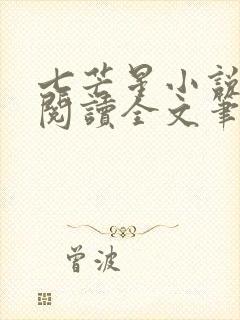 七芒星小說
閱讀全文筆
曾波